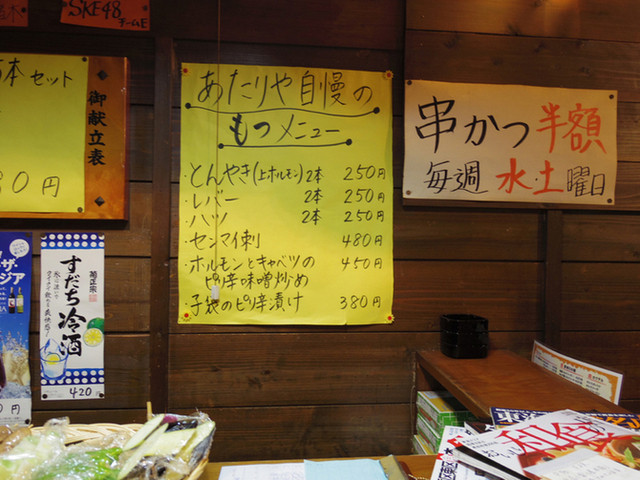 SKE48
チームE
5本セット
御献立表
円
すだち冷酒
菊正宗
420
円
あたりや自慢の
もつメニュー
・とんやき(上ホルモン) 2本 250円
・レバー 2本 250円
・ハツ 2本 250円
・センマイ刺 480円
・ホルモンとキャベツの 450円
ピリ辛味噌炒め
・子袋のピリ辛漬け 380円
串かつ半額
毎週水・土曜日